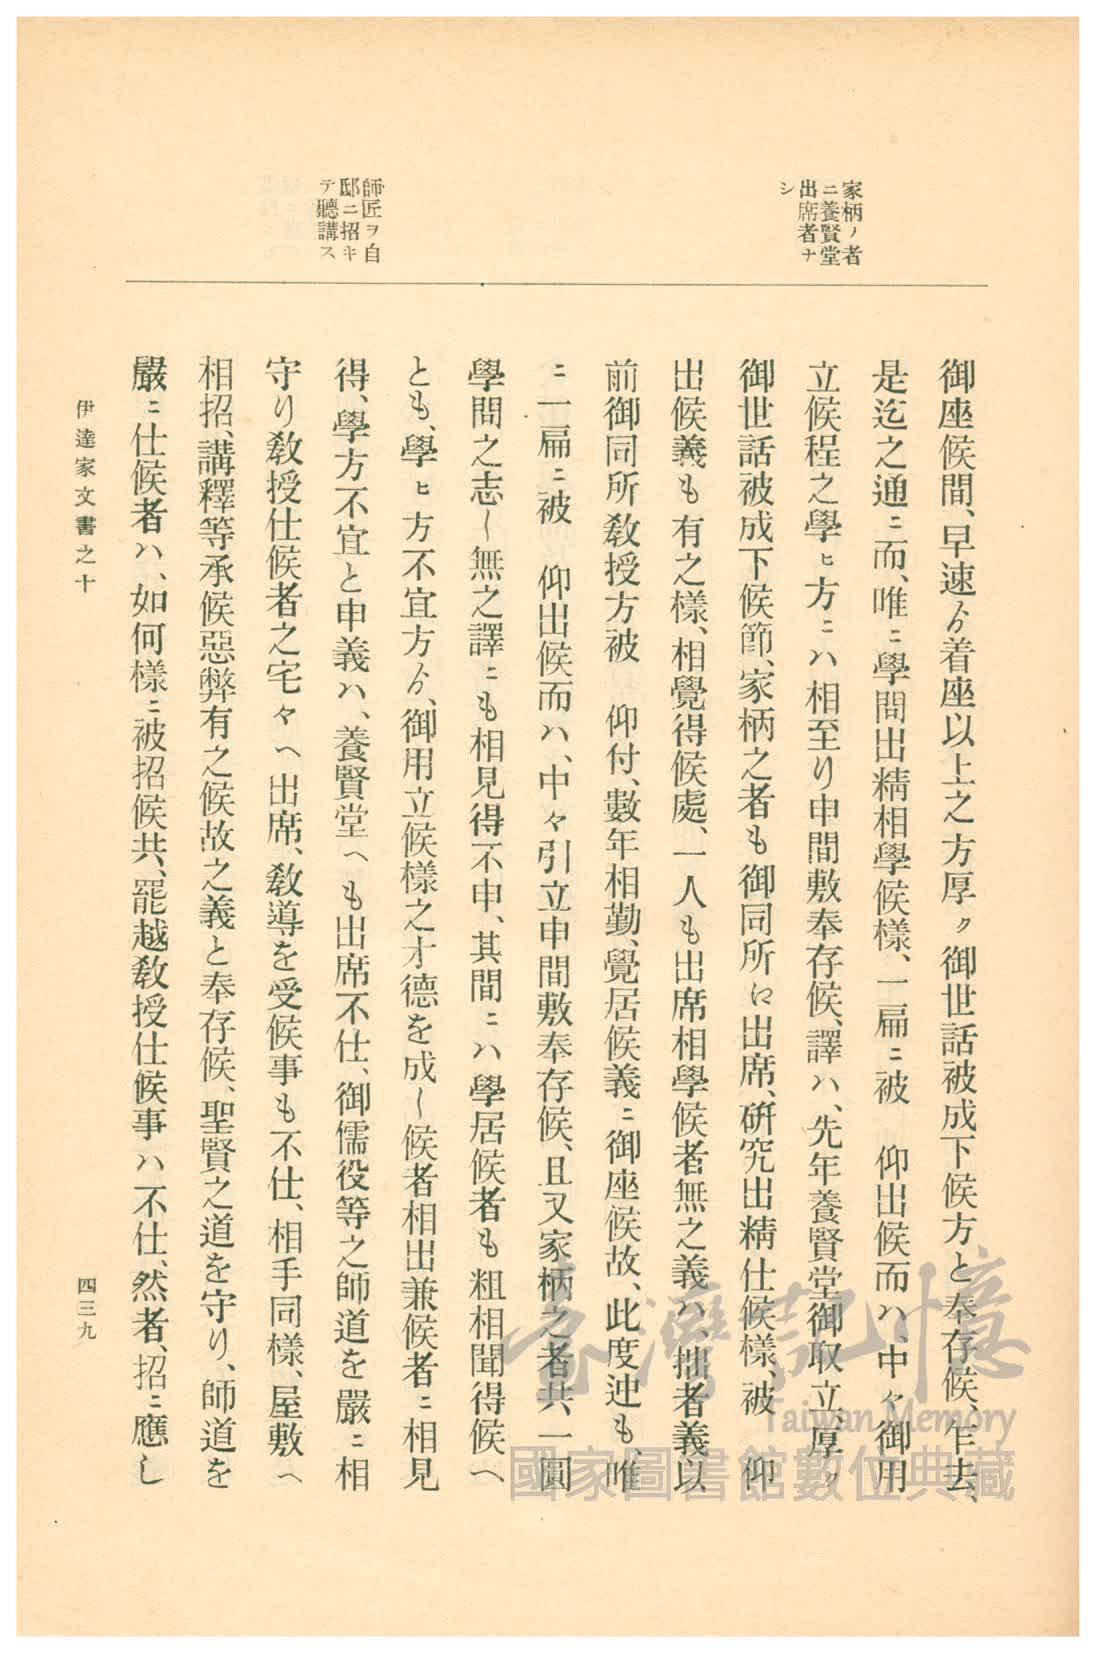 家柄ノ者
ニ養賢堂
出席者ナ
シ
師匠ヲ自
邸ニ招キ
テ聽講ス
御座候間、早速ゟ着座以上之方厚ク御世話被成下候方と奉存候、乍去、
是迄之通ニ而、唯ニ學問出精相學候樣、一扁ニ被　仰出候而ハ、中々御用
立候程之學ヒ方ニハ相至り申間敷奉存候、譯ハ、先年養賢堂御取立、厚ク
御世話被成下候節、家柄之者も御同所江出席、研究出精仕候樣、被　仰
出候義も有之樣、相覺得候處、一人も出席相學候者無之義ハ、拙者義以
前御同所敎授方被　仰付、數年相勤、覺居候義ニ御座候故、此度迚も、唯
ニ一扁ニ被　仰出候而ハ、中々引立申間敷奉存候、且又家柄之者共、一圓
學問之志し無之譯ニも相見得不申、其間ニハ學居候者も粗相聞得候へ
とも、學ヒ方不宜方ゟ、御用立候樣之才德を成し候者相出兼候者ニ相見
得、學方不宜と申義ハ、養賢堂へも出席不仕、御儒役等之師道を嚴ニ相
守り敎授仕候者之宅々へ出席、敎導を受候事も不仕、相手同樣、屋敷へ
相招、講釋等承候惡弊有之候故之義と奉存候、聖賢之道を守り、師道を
嚴ニ仕候者ハ、如何樣ニ被招候共、罷越敎授仕候事ハ不仕、然者、招ニ應し
伊達家文書之十
四三九
臺灣記憶
Taiwan Memory
國家圖書館數位典藏